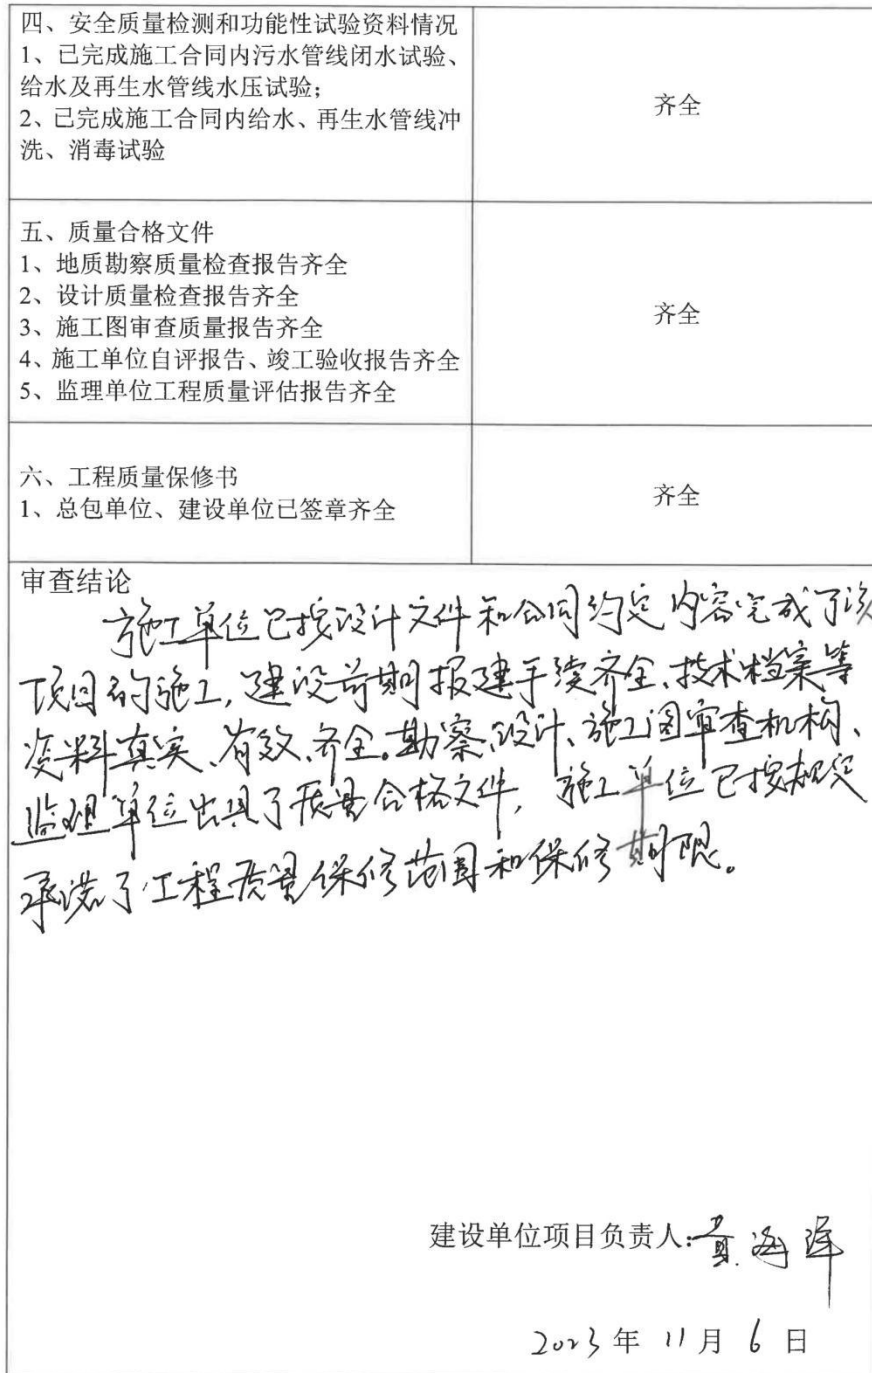 四、安全质量检测和功能性试验资料情况
1、已完成施工合同内污水管线闭水试验、
给水及再生水管线水压试验；
2、已完成施工合同内给水、再生水管线冲
洗、消毒试验
齐全
五、质量合格文件
1、地质勘察质量检查报告齐全
2、设计质量检查报告齐全
3、施工图审查质量报告齐全
4、施工单位自评报告、竣工验收报告齐全
5、监理单位工程质量评估报告齐全
齐全
六、工程质量保修书
1、总包单位、建设单位已签章齐全
齐全
审查结论
施工单位已按设计文件和合同约定内容完成了该
项目的施工,建设前期报建手续齐全、技术档案等
资料真实、有效、齐全。勘察、设计、施工图审查机构、
监理单位出具了质量合格文件,施工单位已按规定
承诺了工程质量保修范围和保修期限。
建设单位项目负责人:黄海
2023年11月6日